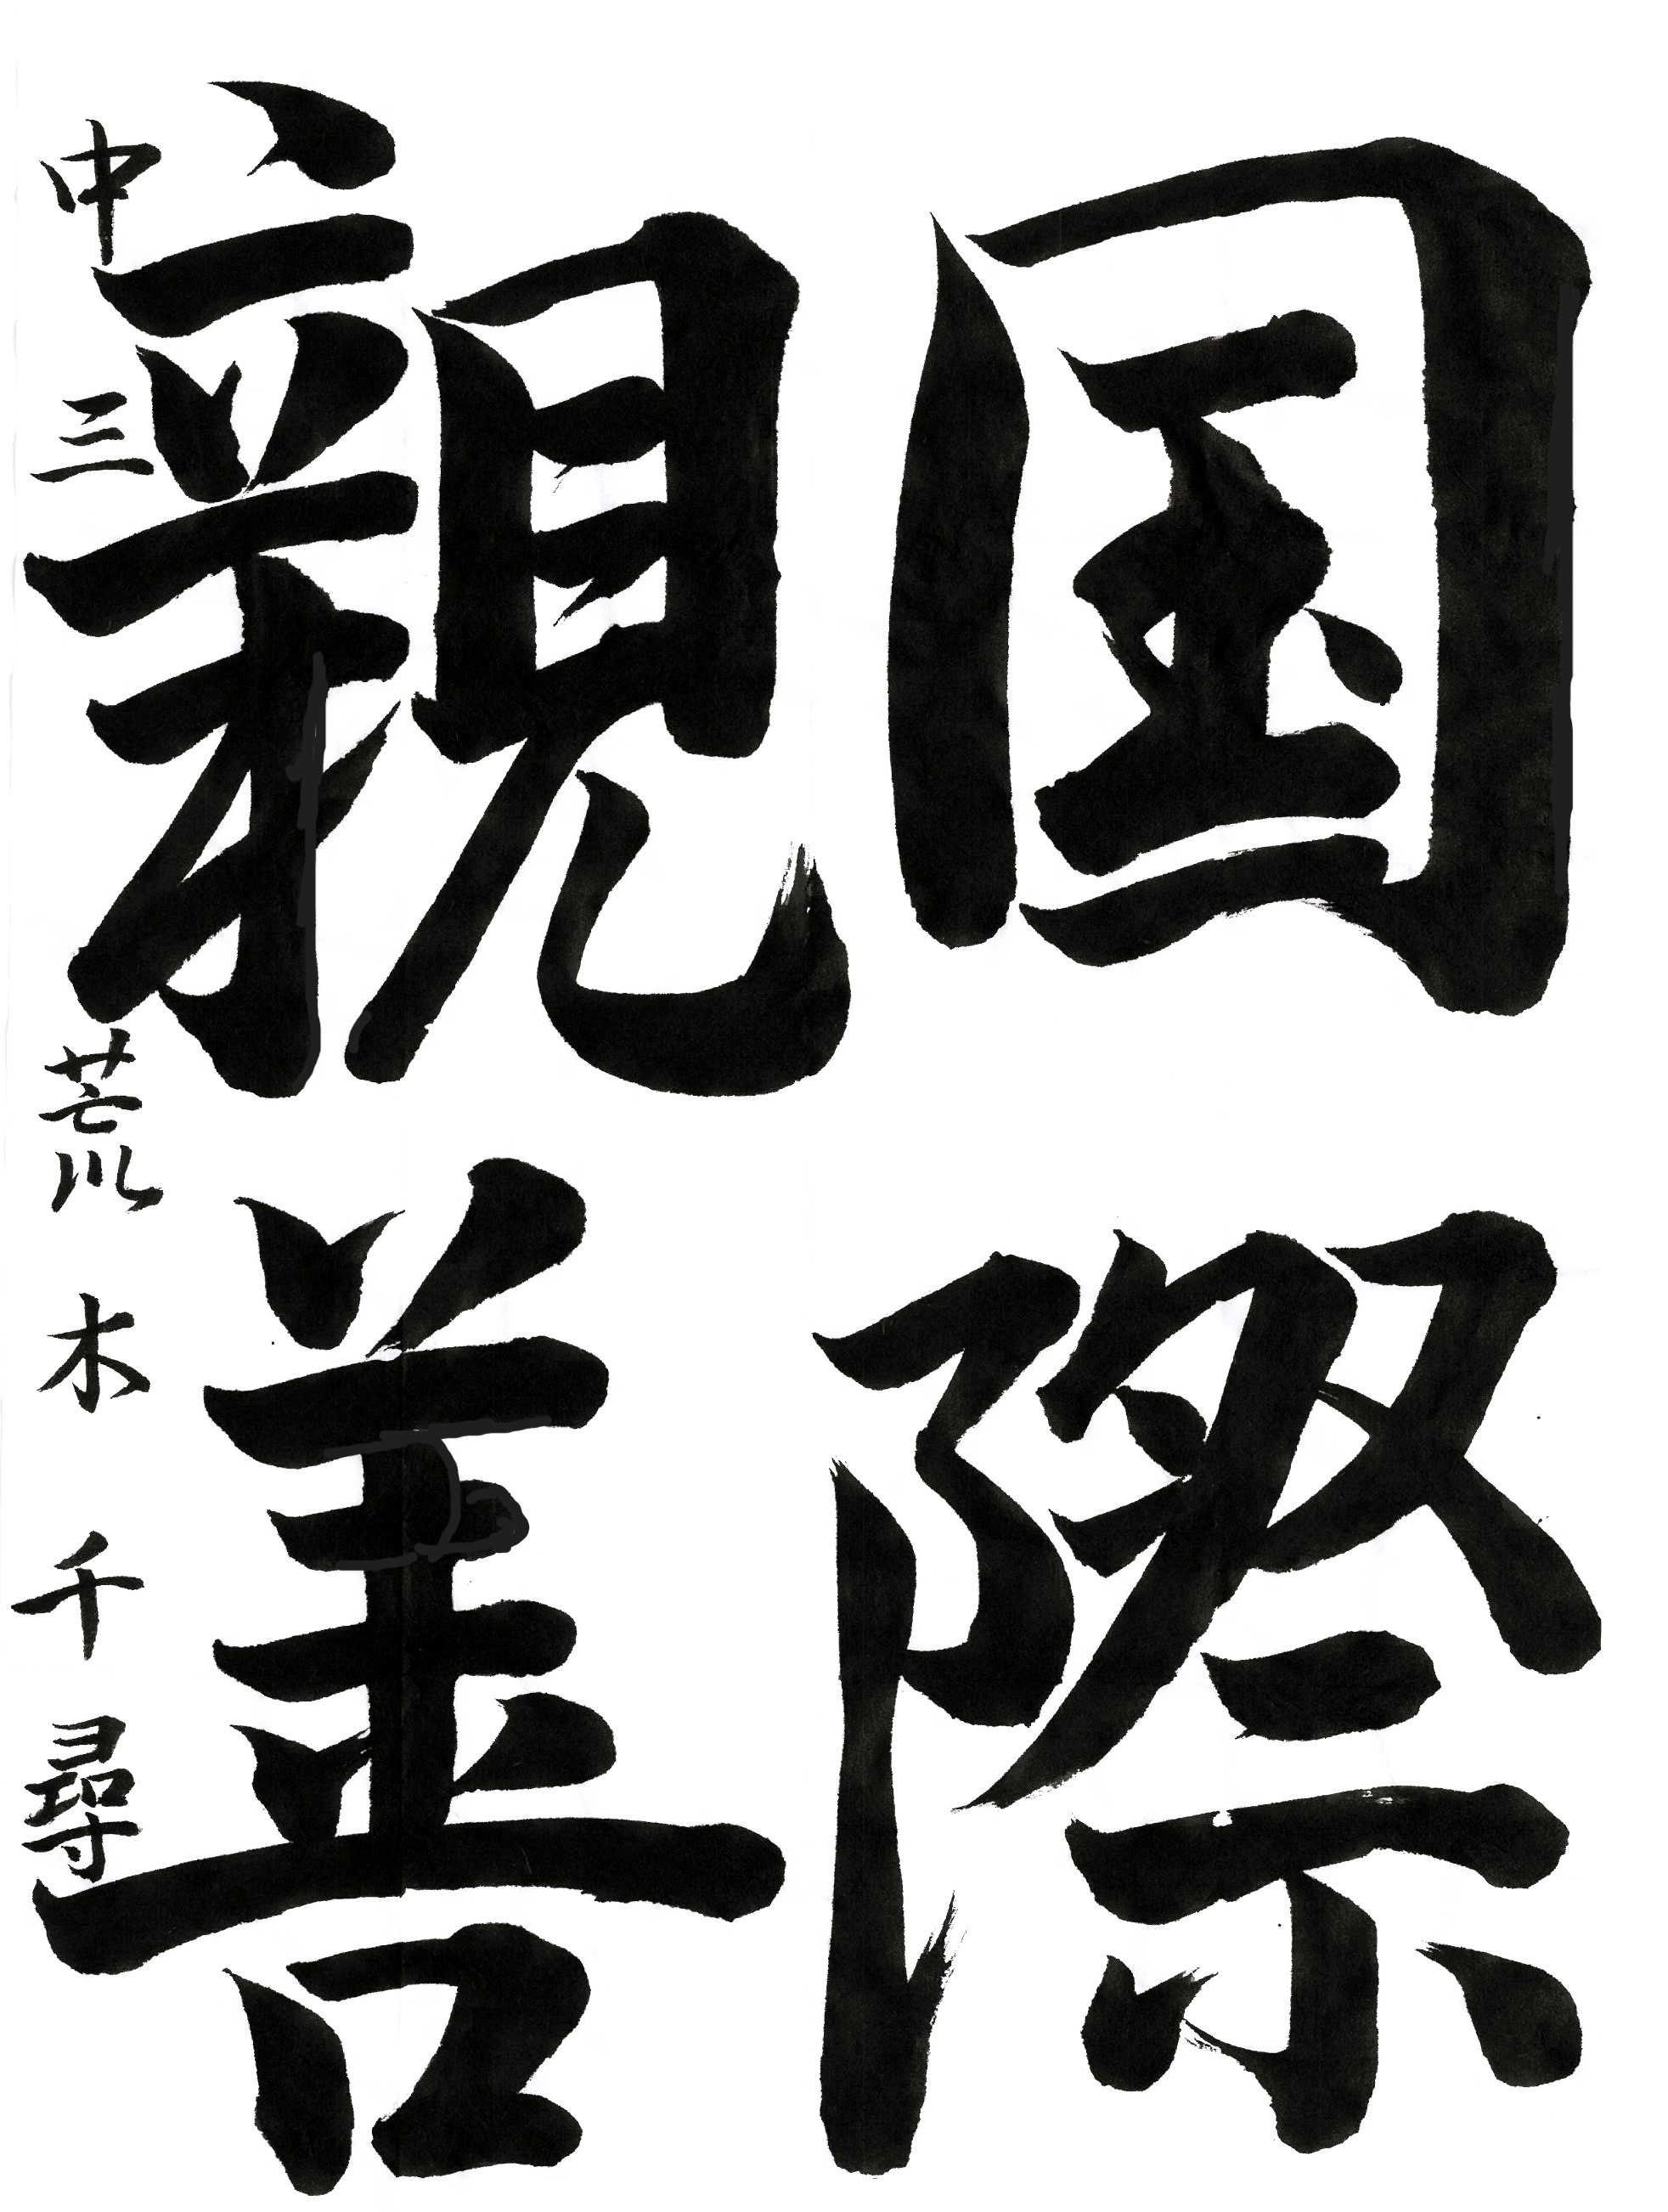 国際
親善
中三 荒木千尋